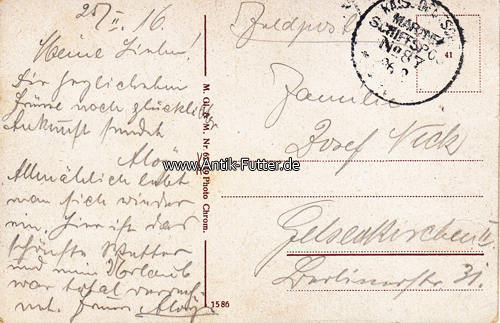 25/II. 16.
Meine Lieben!
Die herzlichsten
Grüsse nach glücklicher
Ankunft sendet
Aloys
Allmählich lebt
man sich wieder
ein. Hier ist das
schönste Wetter
und mein Urlaub
war total
Gruss Aloys
M. Gl. & M. Nr. Photo Chrom.
1586
Feldpost
KAIS. DEUTSCHE
MARINE-
SCHIFFSPOST
No 87
41
Familie
Josef Nick
Gelsenkirchen
Berlinerstr. 31.
www.Antik-Futter.de